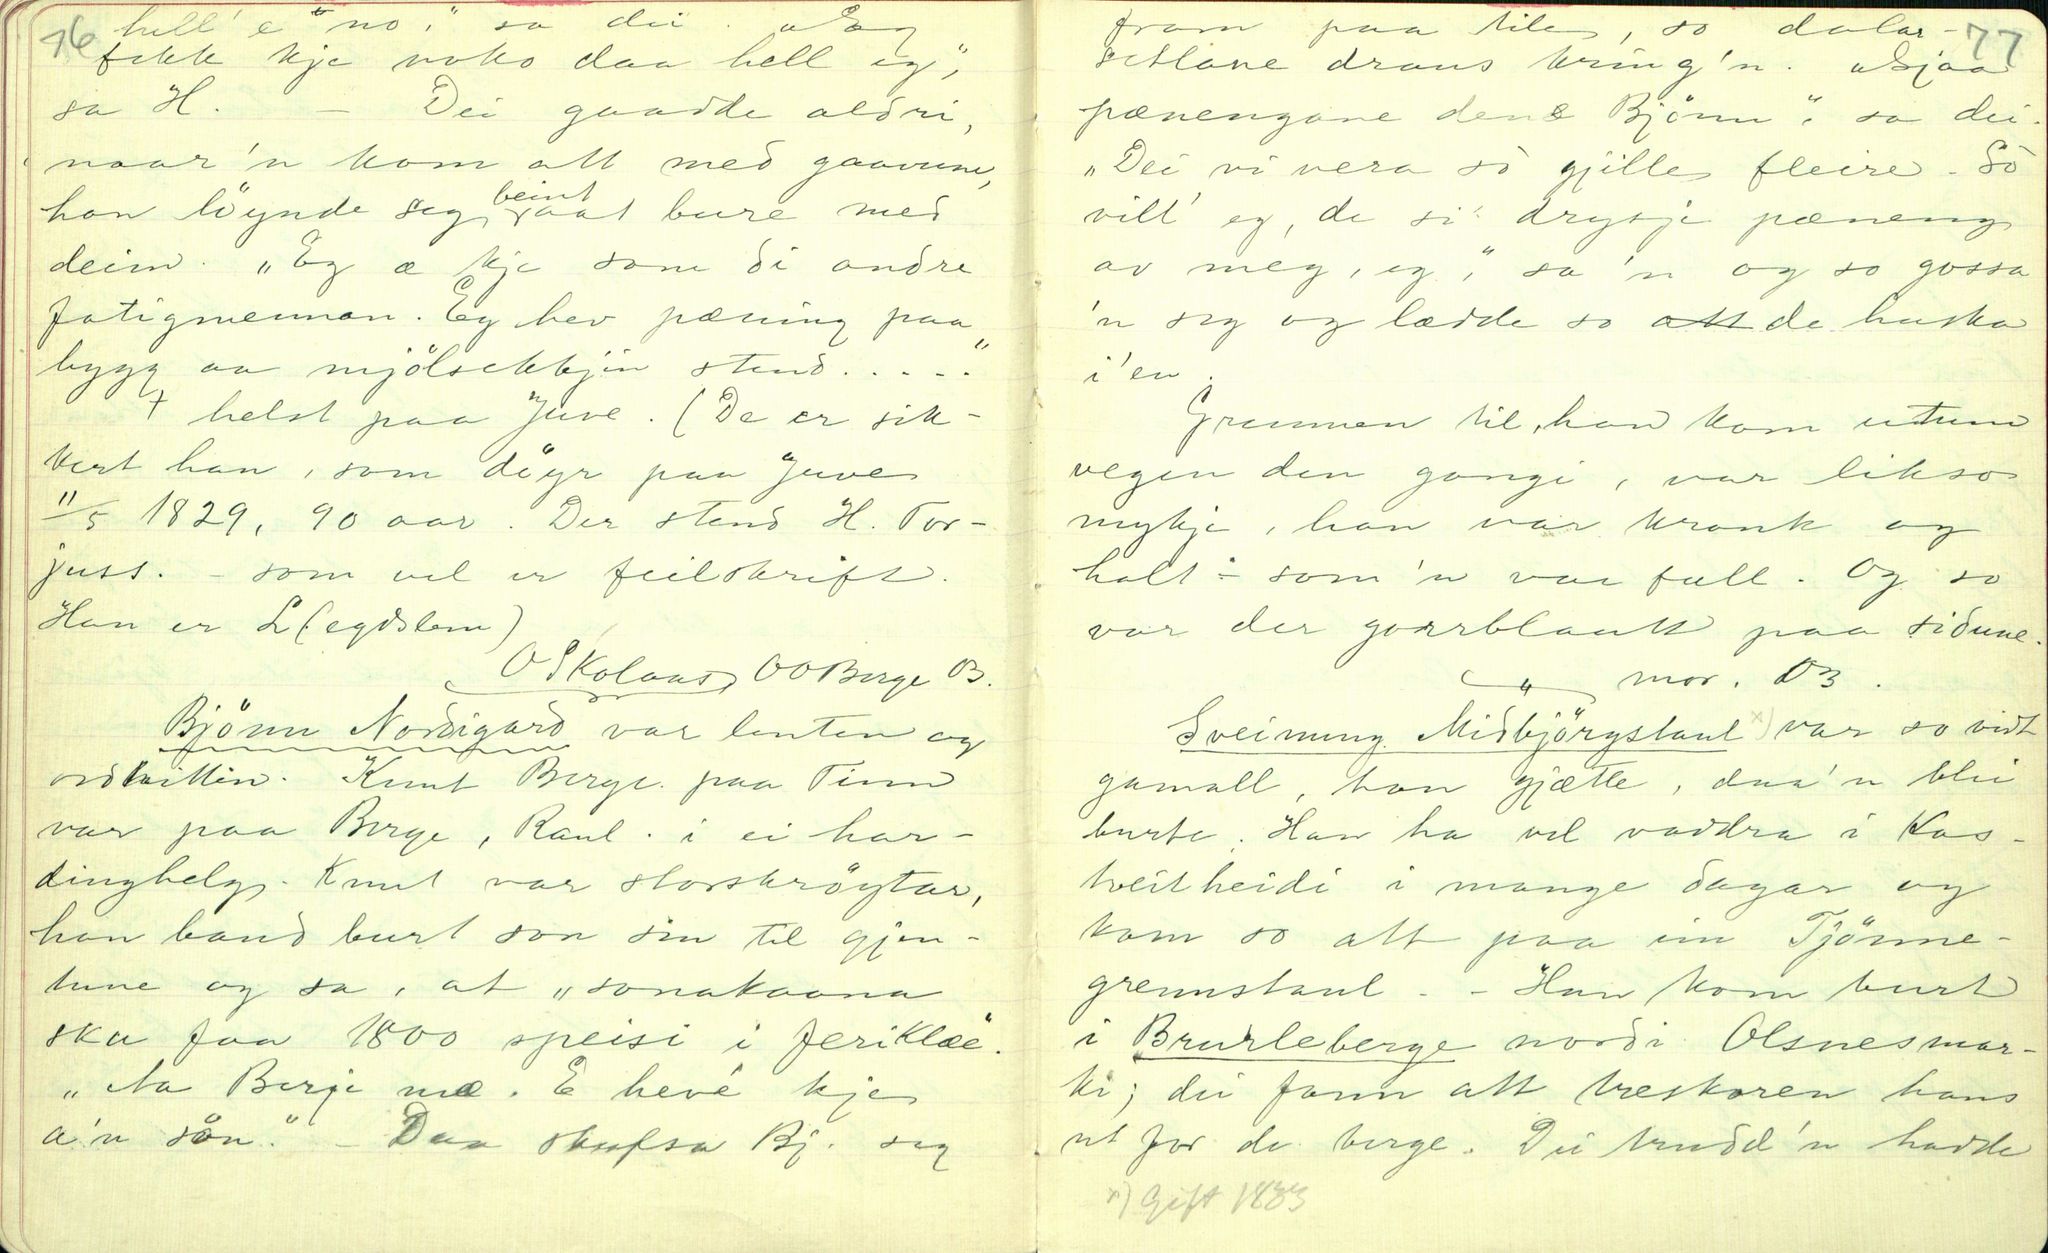 76
hell' e "no," sa dei. "Eg
fekk kje noko daa hell eg",
sa H. - Dei gaadde aldri,
naar'n kom att med gaavune,
han löynde seg beint aat bure med
deim. "Eg æ kje som di andre
fatigmennan. Eg hev pæning paa
bygg aa mjölsekkjin stend....."
+ helst paa Juve. (De er sik-
kert han, som döyr paa Juve
11/5 1829, 90 aar. Der stend H. Tor-
juss. - som vel er feilskrift.
Han er L(egdslem)
O Skolaas, OO Berge B.
Björnn Nordigard var lenten og
ordhittin. Knut Berge paa Tinn
var paa Berge, Raul. i ei har-
dinghelg. Knut var storskröytar,
han baud burt son sin til gjen-
tune og sa, at "sonakaana
ska faa 1800 speisi i feriklæ".
"Aa Berje mæ. E heve kje
a'n sön." - Daa skufsa Bj. seg
77
fram paa tile, so dalar-
setlane draus kring'n. "Sjaa
pænengane dene Björnn", sa dei.
"Dei vi vera så gjille fleire. Så
vill' eg, de si' drysje pæneng
av meg, eg," sa'n og so gossa
'n seg og lædde so de huska
i'en.
Grannen til, han kom utum
vegen den gongi, var likso
mykje, han var krank og
halt - som'n var full. Og so
var der gorrblautt paa sidune.
" mor. OB.
Sveinung Midbjörgstaul x) var so vidt
gamall, han gjætte, daa'n blei
burte. Han ha vel vaddra i Kos-
tveitheidi i mange dagar og
kom so att paa ein Tjönne-
grennstaul. - Han kom burt
i Brurleberge nordi Olsnesmar-
ki; dei fann att treskoren hans
ut for de berge. Dei trudd'n hadde
x) Gift 1833